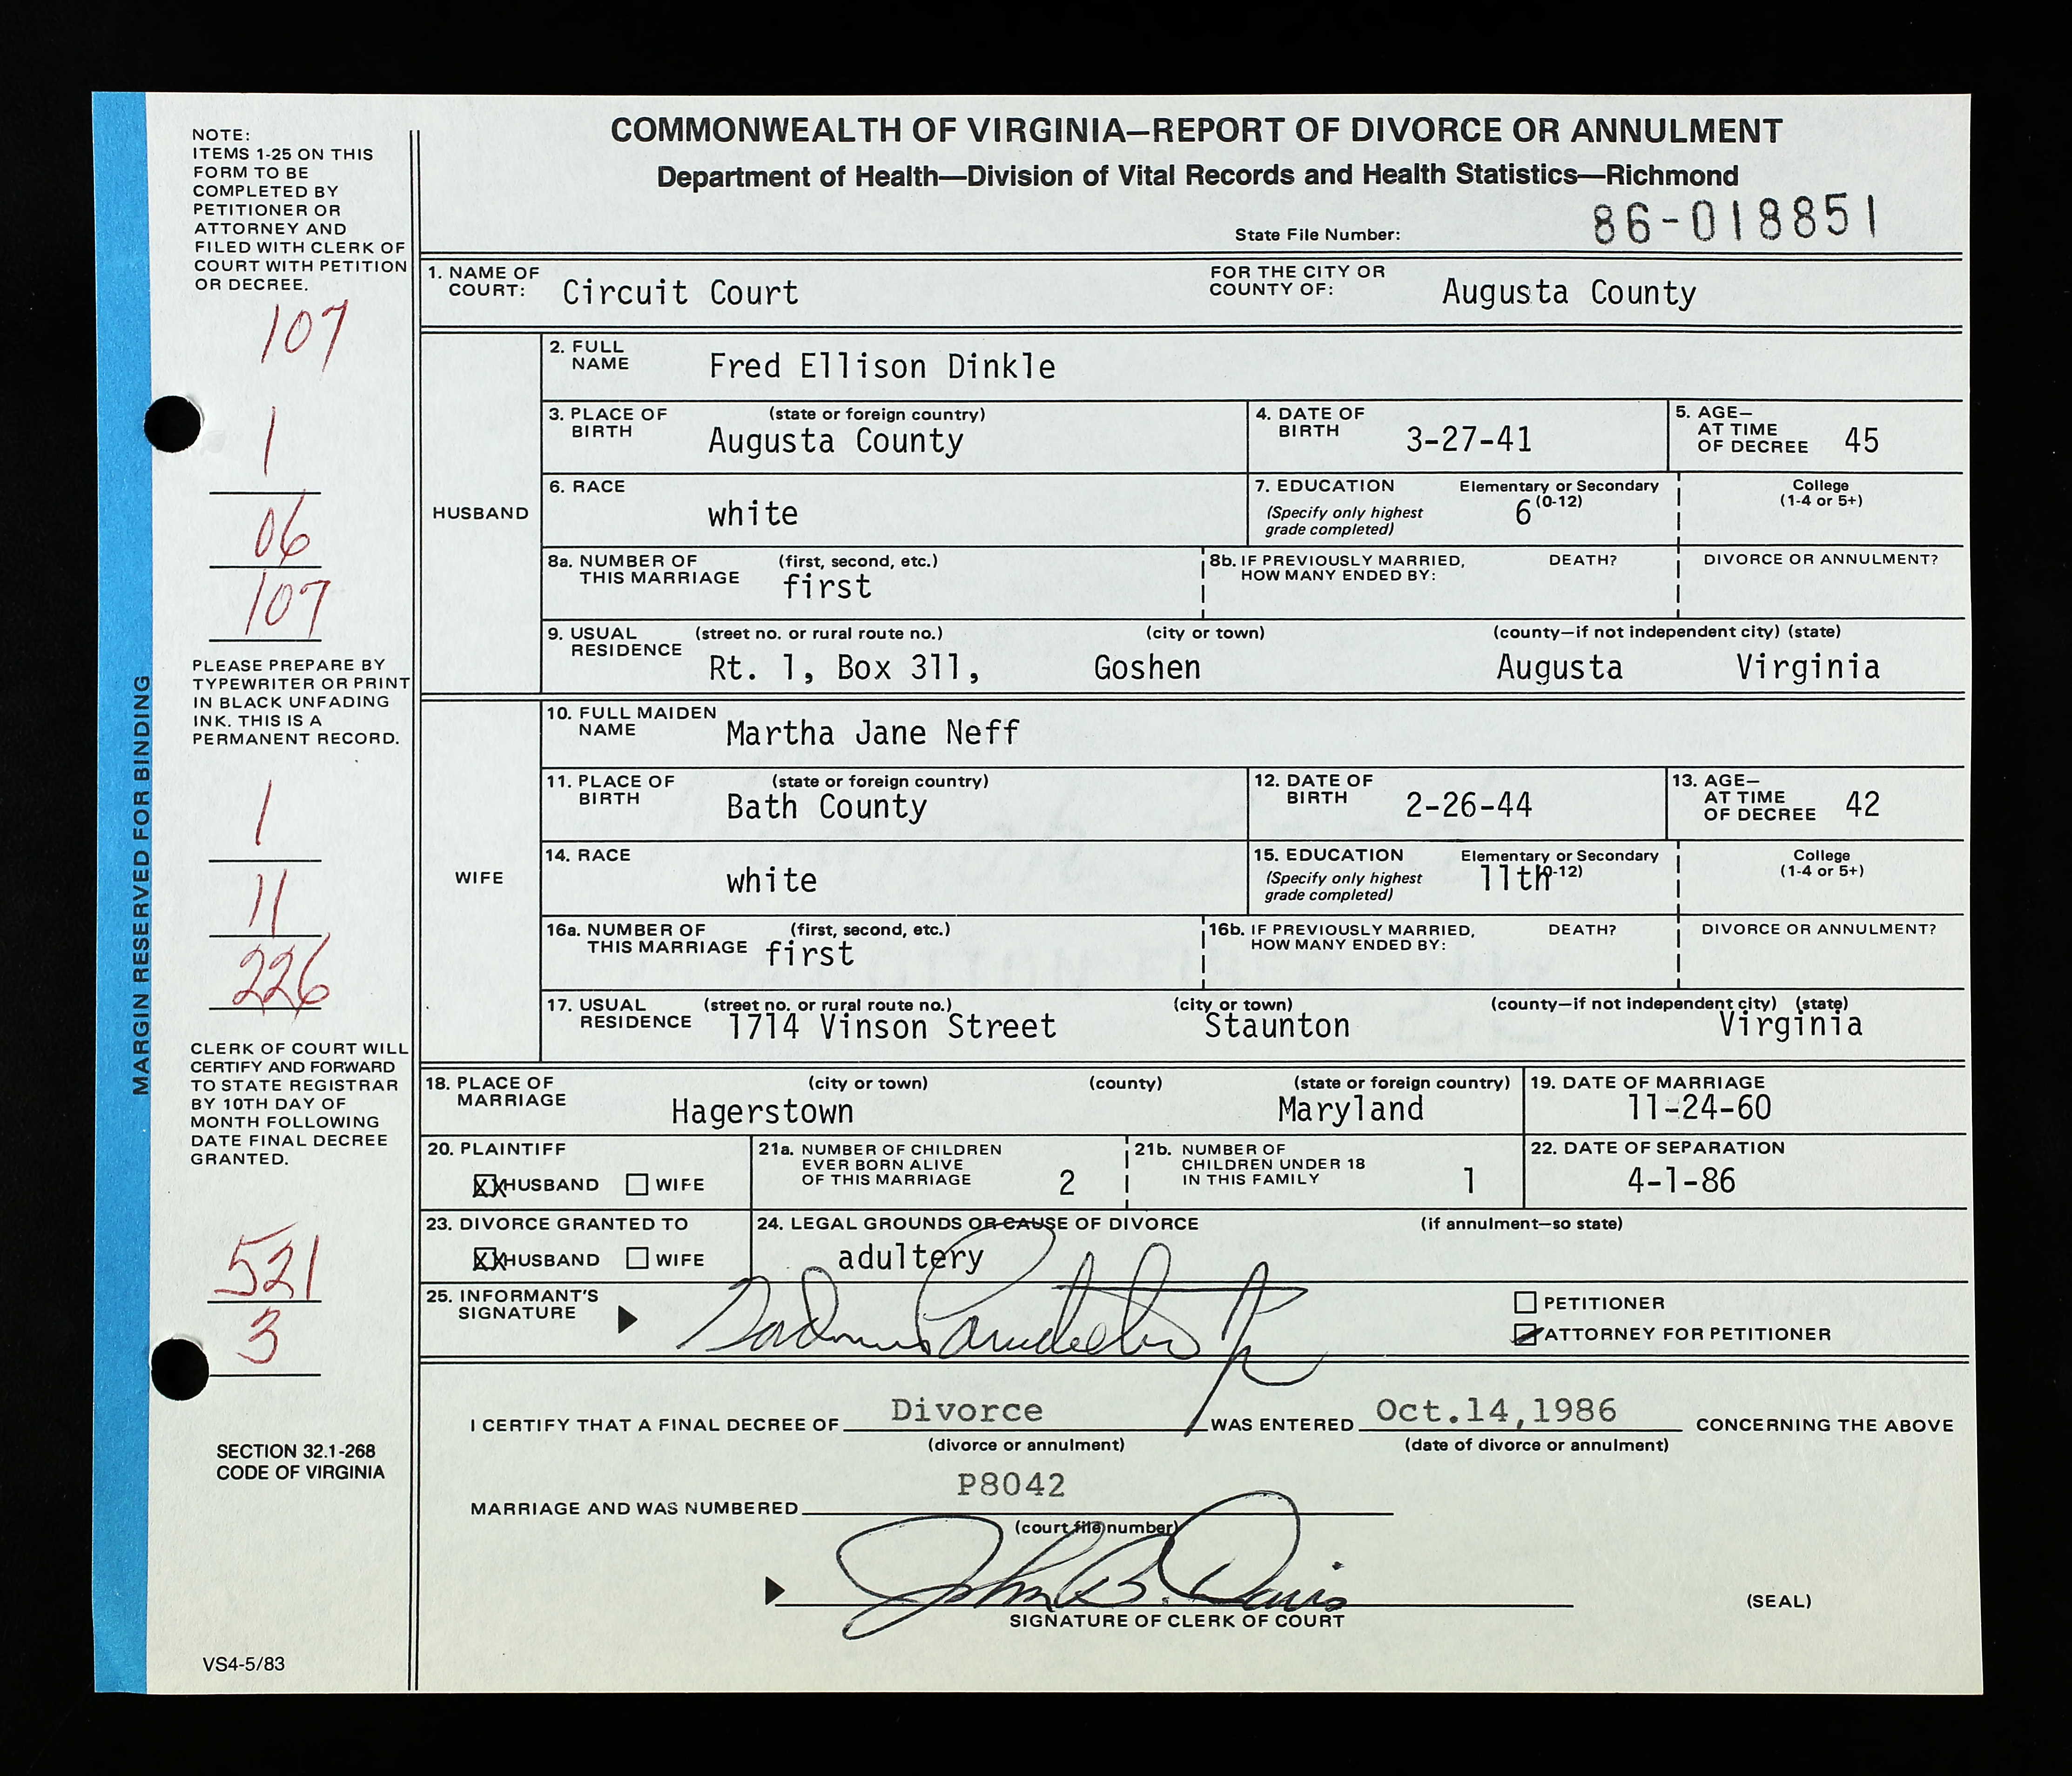 COMMONWEALTH OF VIRGINIA—REPORT OF DIVORCE OR ANNULMENT
Department of Health—Division of Vital Records and Health Statistics—Richmond
State File Number: 86-018851
NOTE:
ITEMS 1-25 ON THIS
FORM TO BE
COMPLETED BY
PETITIONER OR
ATTORNEY AND
FILED WITH CLERK OF
COURT WITH PETITION
OR DECREE.
107
1
06
107
PLEASE PREPARE BY
TYPEWRITER OR PRINT
IN BLACK UNFADING
INK. THIS IS A
PERMANENT RECORD.
1
11
226
CLERK OF COURT WILL
CERTIFY AND FORWARD
TO STATE REGISTRAR
BY 10TH DAY OF
MONTH FOLLOWING
DATE FINAL DECREE
GRANTED.
521
3
SECTION 32.1-268
CODE OF VIRGINIA
VS4-5/83
MARGIN RESERVED FOR BINDING
1. NAME OF COURT: Circuit Court FOR THE CITY OR COUNTY OF: Augusta County
HUSBAND
2. FULL NAME Fred Ellison Dinkle
3. PLACE OF BIRTH (state or foreign country) Augusta County
4. DATE OF BIRTH 3-27-41
5. AGE— AT TIME OF DECREE 45
6. RACE white
7. EDUCATION (Specify only highest grade completed) Elementary or Secondary (0-12) 6 College (1-4 or 5+)
8a. NUMBER OF THIS MARRIAGE (first, second, etc.) first
8b. IF PREVIOUSLY MARRIED, HOW MANY ENDED BY: DEATH? DIVORCE OR ANNULMENT?
9. USUAL RESIDENCE (street no. or rural route no.) (city or town) (county—if not independent city) (state)
Rt. 1, Box 311, Goshen Augusta Virginia
WIFE
10. FULL MAIDEN NAME Martha Jane Neff
11. PLACE OF BIRTH (state or foreign country) Bath County
12. DATE OF BIRTH 2-26-44
13. AGE— AT TIME OF DECREE 42
14. RACE white
15. EDUCATION (Specify only highest grade completed) Elementary or Secondary (0-12) 11th College (1-4 or 5+)
16a. NUMBER OF THIS MARRIAGE (first, second, etc.) first
16b. IF PREVIOUSLY MARRIED, HOW MANY ENDED BY: DEATH? DIVORCE OR ANNULMENT?
17. USUAL RESIDENCE (street no. or rural route no.) (city or town) (county—if not independent city) (state)
1714 Vinson Street Staunton Virginia
18. PLACE OF MARRIAGE (city or town) (county) (state or foreign country)
Hagerstown Maryland
19. DATE OF MARRIAGE 11-24-60
20. PLAINTIFF XX HUSBAND WIFE
21a. NUMBER OF CHILDREN EVER BORN ALIVE OF THIS MARRIAGE 2
21b. NUMBER OF CHILDREN UNDER 18 IN THIS FAMILY 1
22. DATE OF SEPARATION 4-1-86
23. DIVORCE GRANTED TO XX HUSBAND WIFE
24. LEGAL GROUNDS OR CAUSE OF DIVORCE (if annulment—so state)
adultery
25. INFORMANT'S SIGNATURE
PETITIONER
ATTORNEY FOR PETITIONER
I CERTIFY THAT A FINAL DECREE OF Divorce WAS ENTERED Oct.14,1986 CONCERNING THE ABOVE
(divorce or annulment) (date of divorce or annulment)
MARRIAGE AND WAS NUMBERED P8042
(court file number)
John B. Davis
SIGNATURE OF CLERK OF COURT
(SEAL)